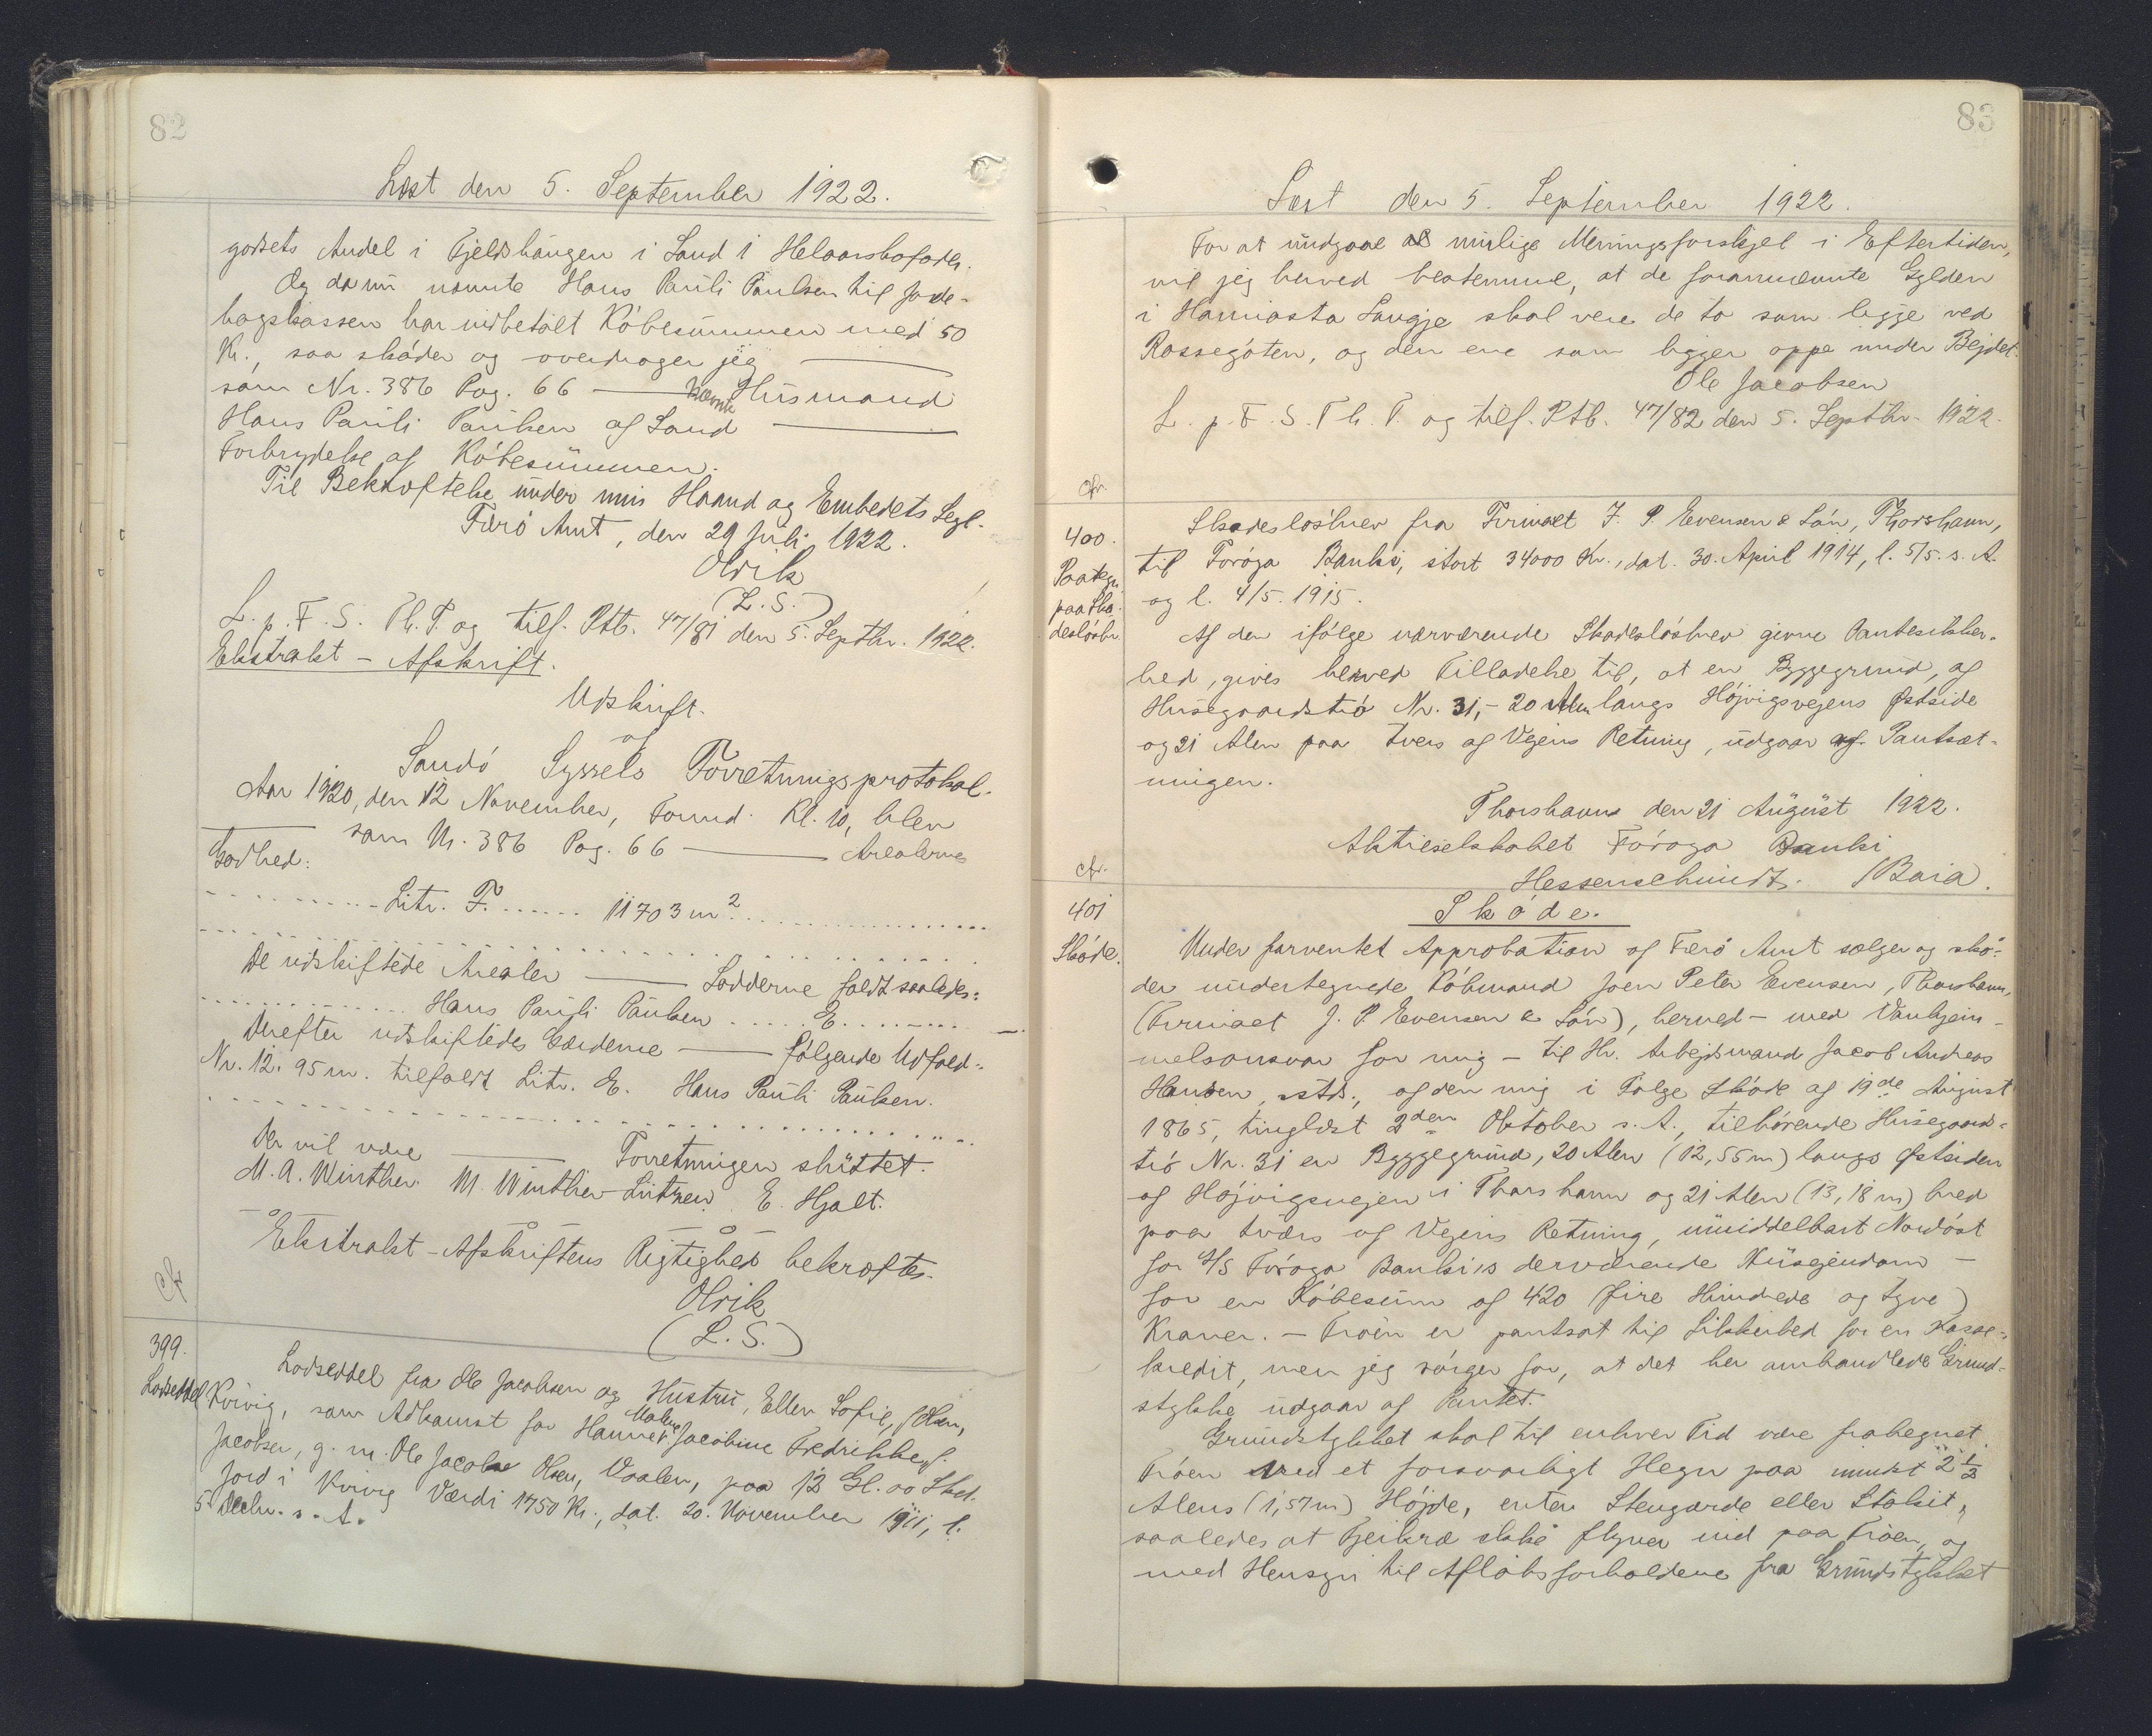 82
Læst den 5. September 1922.
godsets Andel i Fjeldshaugen i Sand i Helaarshofodr.
Og da nu nævnte Hans Pauli Paulsen til Jorde-
bogskassen har indbetalt Köbesummen med 50
Kr., saa sköder og overdrager jeg
som Nr. 386 Pag. 66 — nævnte Husmand
Hans Pauli Paulsen af Sand
Forbrydelse af Köbesummen.
Til Bekræftelse under min Haand og Embedets Segl.
Færö Amt, den 29 Juli 1922.
Olrik
(L.S.)
L. p. F. S. Th. T. og tilf. Ptb. 47/81 den 5. Septbr. 1922.
Ekstrakt - Afskrift.
Udskrift
af
Sandö Syssels Forretningsprotokol.
Aar 1920, den 12 November, Formd. Kl. 10, blev
som Nr. 386 Pag. 66 — Arealernes
Godhed:
Litr. F. ...... 11703 m². 
De udskiftede Arealer — Lodderne faldt saaledes:
Hans Pauli Paulsen ..... E. .......
Derefter udskiftedes Gærderne — følgende Udfald:
Nr. 12. 95 m. tilfaldt Litr. E. Hans Pauli Paulsen.
Der vil være — Forretningen sluttet.
M. A. Winther. M. Winther-Lützen. E. Hjalt.
Ekstrakt-Afskriftens Rigtighed bekræftes.
Olrik
(L. S.)
Cfr
399.
Lodseddel
Lodseddel fra Ole Jacobsen og Hustru, Ellen Sofie, f. Olsen,
Kvivig, som Adkomst for Hanne Malene Jacobine Fredrikke f.
Jacobsen, g. m. Ole Jacob Olsen, Vaalen, paa 12 Gl. oo Skd.
Jord i Kvivig Værdi 1750 Kr., dat. 20. November 1911, l.
5 Decbr. s. A.
83
Læst den 5. September 1922.
For at undgaae al mulige Meningsforskjel i Eftertiden,
vil jeg herved bestemme, at de forannævnte Gylden
i Hamiasta Laugje skal være de to som ligge ved
Rossegöten, og den ene som ligger oppe under Bejdet.
Ole Jacobsen
L. p. F. S. Th. T. og tilf. Ptb. 47/82 den 5. Septbr. 1922.
cfr.
400.
Paategn.
paa Ska-
deslösbr.
Skadeslösbrev fra Firmaet J. P. Evensen & Sön, Thorshavn,
til Föroya Banki, stort 34000 Kr., dat. 30. April 1914, l. 5/5. s. A.
og l. 4/5. 1915.
Af den ifölge nærværende Skadeslösbrev givne Pantesikker-
hed, gives herved Tilladelse til, at en Byggegrund, af
Husegaardströ Nr. 31, - 20 Alen langs Höjvigsvejens Østside
og 21 Alen paa tvers af Vejens Retning, udgaar af Pantsæt-
ningen.
Thorshavn den 21 August 1922.
Aktieselskabet Föroya Banki
Hessenschmidt. / Baia.
cfr.
401
Sköde.
Sköde.
Under forventet Approbation af Færö Amt sælger og skö-
der undertegnede Köbmand Joen Peter Evensen, Thorshavn,
(Firmaet J. P. Evensen & Sön), herved - med Vanhjem-
melsansvar for mig - til Hr. Arbejdsmand Jacob Andreas
Hansen, istds., af den mig i Fölge Sköde af 19de August
1865, tinglæst 2den Oktober s. A., tilhörende Husegaard-
trö Nr. 31 en Byggegrund, 20 Alen (12,55 m) langs Østsiden
af Höjvigsvejen i Thorshavn og 21 Alen (13,18 m) bred
paa tværs af Vejens Retning, umiddelbart Nordöst
for A/S Föroya Banki's derværende Husejendom —
for en Köbesum af 420 (fire Hundrede og tyve)
Kroner. — Tröen er pantsat til Sikkerhed for en Kasse-
kredit, men jeg sörger for, at det her omhandlede Grund-
stykke udgaar af Pantet.
Grundstykket skal til enhver Tid være frahegnet
Tröen med et forsvarligt Hegn paa mindst 2 1/2
Alens (1,57 m) Höjde, enten Stengærde eller Stakit,
saaledes at Fjerkræ ikke flyver ind paa Tröen, og
med Hensyn til Aflöbsforholdene fra Grundstykket